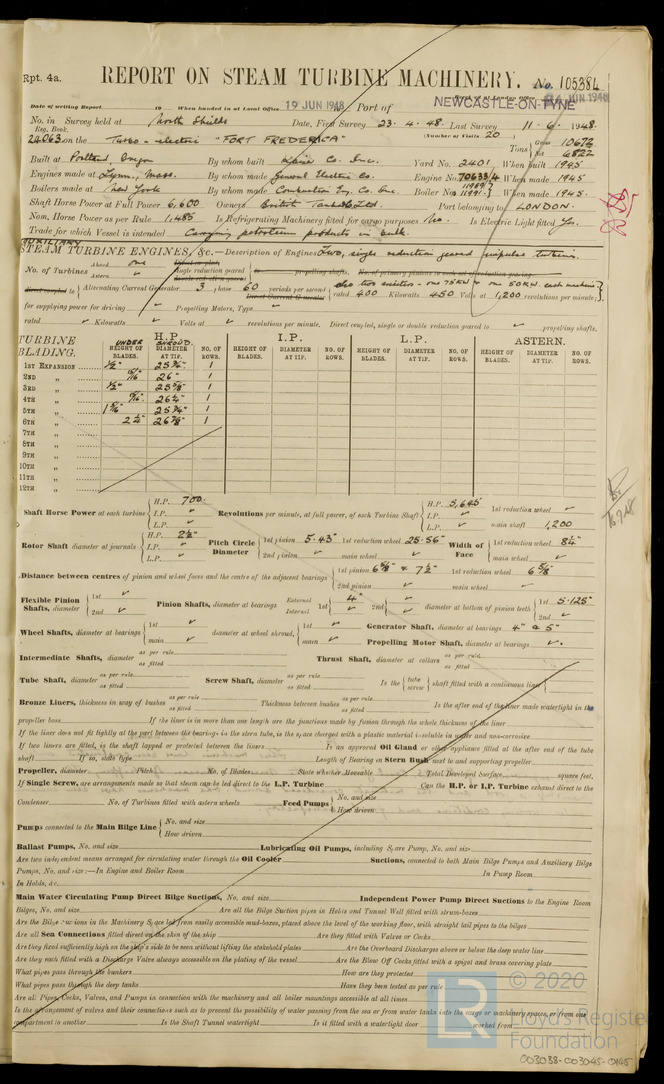 Rpt. 4a.
REPORT ON STEAM TURBINE MACHINERY. No. 105384
Date of writing Report 19 When handed in at Local Office 19 JUN 1948 Port of NEWCASTLE-ON-TYNE
No. in Survey held at North Shields Date, First Survey 23.4.48. Last Survey 11.6.1948.
Reg. Book. (Number of Visits 20)
24063 on the Turbo-electric "FORT FREDERICA" Tons Gross 10672 Net 6822
Built at Portland, Oregon By whom built Kaiser Co. Inc. Yard No. 2401 When built 1945
Engines made at Lynn, Mass. By whom made General Electric Co. Engine No. 70633/4 When made 1945
Boilers made at New York By whom made Combustion Eng. Co. Inc. Boiler No. When made 1945.
Shaft Horse Power at Full Power 6,600 Owners British Tanker Co Ltd Port belonging to LONDON.
Nom. Horse Power as per Rule 1,485 Is Refrigerating Machinery fitted for cargo purposes No. Is Electric Light fitted Yes.
Trade for which Vessel is intended Carrying petroleum products in bulk.
AUXILIARY
STEAM TURBINE ENGINES, &c.—Description of Engines Two, single reduction geared impulse turbines.
No. of Turbines Ahead one Astern
direct coupled to Alternating Current Generator 3 phase 60 periods per second rated 400 Kilowatts 450 Volts at 1,200 revolutions per minute;
also two exciters - one 75KW & one 50KW. each machine
for supplying power for driving Propelling Motors, Type
rated Kilowatts Volts at revolutions per minute. Direct coupled, single or double reduction geared to propelling shafts.
TURBINE BLADING. H.P. I.P. L.P. ASTERN.
UNDER SHROUD.
HEIGHT OF BLADES. DIAMETER AT TIP. NO. OF ROWS. HEIGHT OF BLADES. DIAMETER AT TIP. NO. OF ROWS. HEIGHT OF BLADES. DIAMETER AT TIP. NO. OF ROWS. HEIGHT OF BLADES. DIAMETER AT TIP. NO. OF ROWS.
1ST EXPANSION 1/2" 1
2ND " 26" 1
3RD " 1/2" 25 5/8" 1
4TH " 9/16" 26 1/4" 1
5TH " 25 3/4" 1
6TH " 2 1/4" 26 7/8" 1
7TH "
8TH "
9TH "
10TH "
11TH "
12TH "
Shaft Horse Power at each turbine H.P. 700. I.P. L.P. Revolutions per minute, at full power, of each Turbine Shaft H.P. 5,645 I.P. L.P. 1st reduction wheel main shaft 1,200
Rotor Shaft diameter at journals H.P. 2 1/2" I.P. L.P. Pitch Circle Diameter 1st pinion 5.43" 1st reduction wheel 25.56" 2nd pinion main wheel Width of Face 1st reduction wheel 8 1/4" main wheel
Distance between centres of pinion and wheel faces and the centre of the adjacent bearings 1st pinion 6 5/8" & 7 1/2" 1st reduction wheel 6 5/8" 2nd pinion main wheel
Flexible Pinion Shafts, diameter 1st 2nd Pinion Shafts, diameter at bearings External Internal 1st 4" 2nd diameter at bottom of pinion teeth 1st 5.125" 2nd
Wheel Shafts, diameter at bearings 1st main diameter at wheel shroud, 1st main Generator Shaft, diameter at bearings 4" & 5"
Propelling Motor Shaft, diameter at bearings
Intermediate Shafts, diameter as per rule as fitted Thrust Shaft, diameter at collars as per rule as fitted
Tube Shaft, diameter as per rule as fitted Screw Shaft, diameter as per rule as fitted Is the tube screw shaft fitted with a continuous liner
Bronze Liners, thickness in way of bushes as per rule as fitted Thickness between bushes as per rule as fitted Is the after end of the liner made watertight in the
propeller boss If the liner is in more than one length are the junctions made by fusion through the whole thickness of the liner
If the liner does not fit tightly at the part between the bearings in the stern tube, is the space charged with a plastic material insoluble in water and non-corrosive
If two liners are fitted, is the shaft lapped or protected between the liners Is an approved Oil Gland or other appliance fitted at the after end of the tube
shaft If so, state type Length of Bearing in Stern Bush next to and supporting propeller
Propeller, diameter Pitch No. of Blades State whether Moveable Total Developed Surface square feet.
If Single Screw, are arrangements made so that steam can be led direct to the L.P. Turbine Can the H.P. or I.P. Turbine exhaust direct to the
Condenser No. of Turbines fitted with astern wheels Feed Pumps No. and size How driven
Pumps connected to the Main Bilge Line No. and size How driven
Ballast Pumps, No. and size Lubricating Oil Pumps, including Spare Pump, No. and size
Are two independent means arranged for circulating water through the Oil Cooler Suctions, connected to both Main Bilge Pumps and Auxiliary Bilge
Pumps, No. and size:—In Engine and Boiler Room In Pump Room
In Holds, &c.
Main Water Circulating Pump Direct Bilge Suctions, No. and size Independent Power Pump Direct Suctions to the Engine Room
Bilges, No. and size Are all the Bilge Suction pipes in Holds and Tunnel Well fitted with strum-boxes
Are the Bilge Suctions in the Machinery Space led from easily accessible mud-boxes, placed above the level of the working floor, with straight tail pipes to the bilges
Are all Sea Connections fitted direct on the skin of the ship Are they fitted with Valves or Cocks
Are they fixed sufficiently high on the ship's side to be seen without lifting the stokehold plates Are the Overboard Discharges above or below the deep water line
Are they each fitted with a Discharge Valve always accessible on the plating of the vessel Are the Blow Off Cocks fitted with a spigot and brass covering plate
What pipes pass through the bunkers How are they protected
What pipes pass through the deep tanks Have they been tested as per rule
Are all Pipes, Cocks, Valves, and Pumps in connection with the machinery and all boiler mountings accessible at all times
Is the arrangement of valves and their connections such as to prevent the possibility of water passing from the sea or from water tanks into the cargo or machinery spaces, or from one
compartment to another Is the Shaft Tunnel watertight Is it fitted with a watertight door worked from
© 2020
LR
Lloyd's Register
Foundation
003038-003045-0145